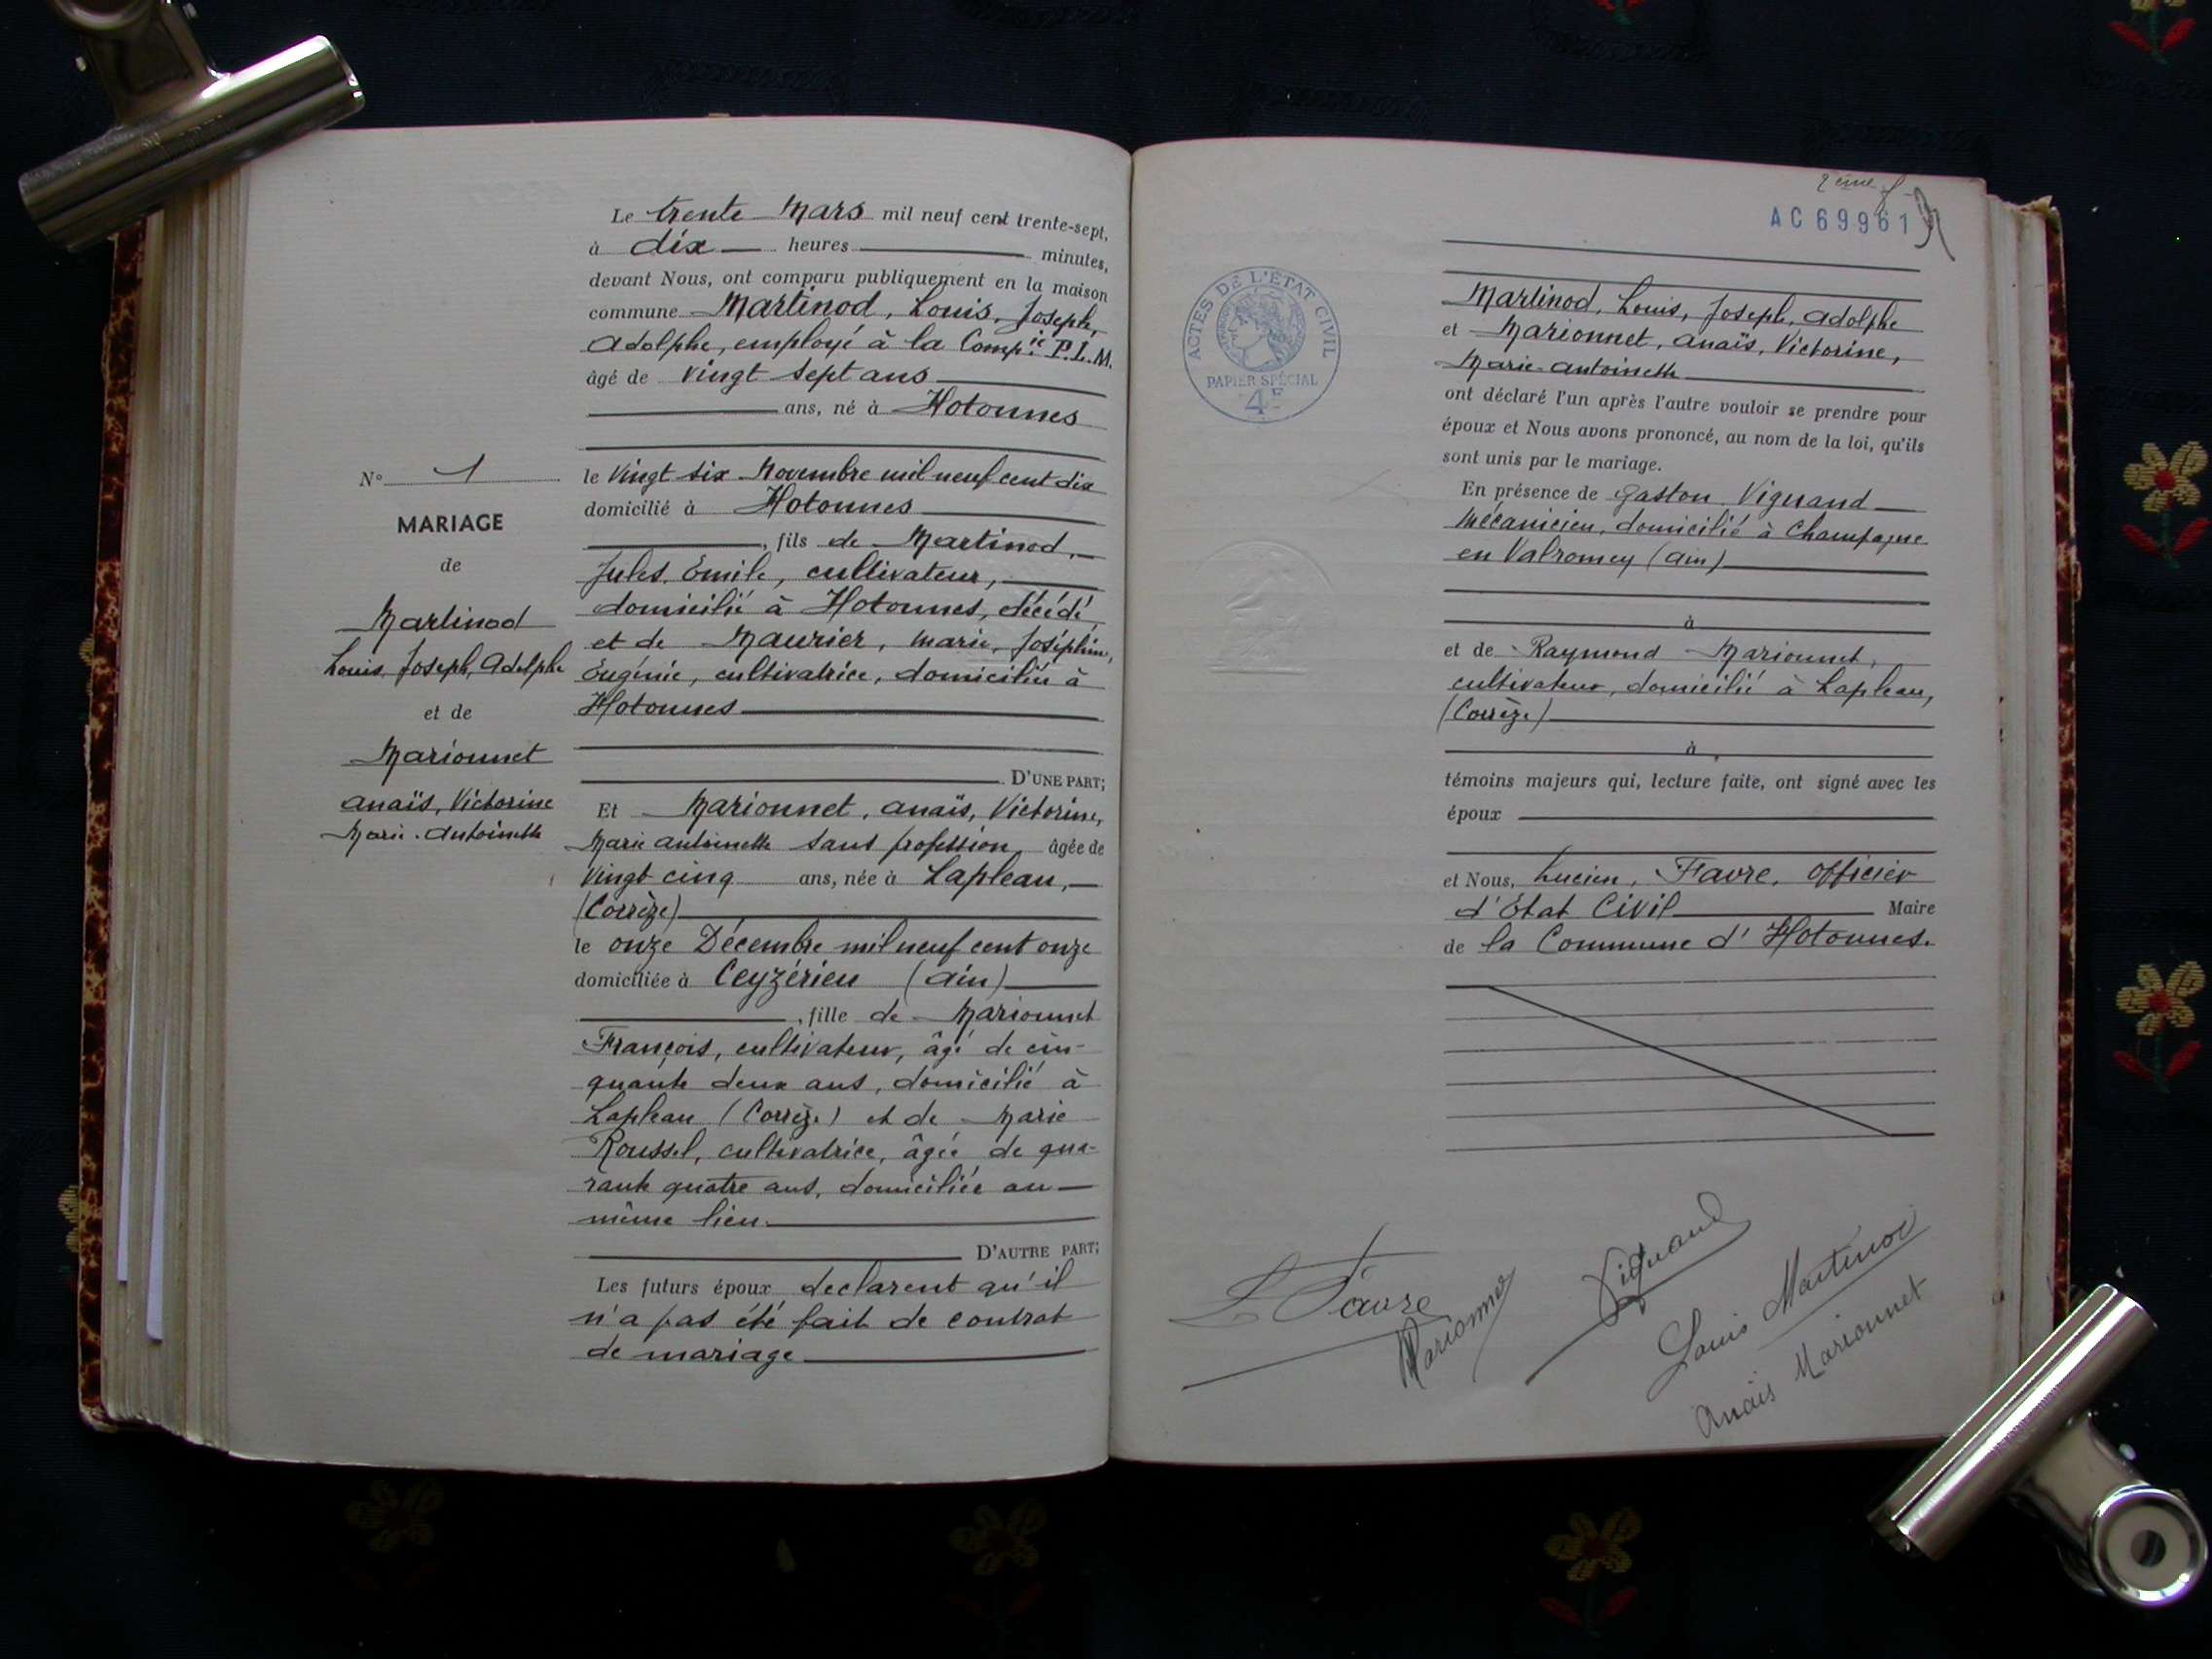 N° 1
MARIAGE
de
Martinod
Louis, Joseph, Adolphe
et de
Marionnet
Anaïs, Victorine
Marie-Antoinette
Le trente Mars mil neuf cent trente-sept,
à dix heures minutes,
devant Nous, ont comparu publiquement en la maison
commune Martinod, Louis, Joseph,
Adolphe, employé à la Compie P.L.M.
âgé de vingt sept ans
ans, né à Hotonnes
le vingt six Novembre mil neuf cent dix
domicilié à Hotonnes
, fils de Martinod,
Jules, Emile, cultivateur,
domicilié à Hotonnes, décédé
et de Maurier, Marie, Joséphine,
Eugénie, cultivatrice, domiciliée à
Hotonnes
D'UNE PART;
Et Marionnet, Anaïs, Victorine,
Marie Antoinette sans profession âgée de
vingt cinq ans, née à Lapleau,
(Corrèze)
le onze Décembre mil neuf cent onze
domiciliée à Ceyzérieu (Ain)
, fille de Marionnet
François, cultivateur, âgé de cin-
quante deux ans, domicilié à
Lapleau (Corrèze) et de Marie
Roussel, cultivatrice, âgée de qua-
rante quatre ans, domiciliée au
même lieu.
D'AUTRE PART;
Les futurs époux declarent qu'il
n'a pas été fait de contrat
de mariage
2ème f
AC 69961
ACTES DE L'ÉTAT CIVIL
PAPIER SPÉCIAL
4F
Martinod, Louis, Joseph, Adolphe
et Marionnet, Anaïs, Victorine,
Marie-Antoinette
ont déclaré l'un après l'autre vouloir se prendre pour
époux et Nous avons prononcé, au nom de la loi, qu'ils
sont unis par le mariage.
En présence de Gaston Viguand
Mécanicien, domicilié à Champagne
en Valromey (Ain)
à
et de Raymond Marionnet,
cultivateur, domicilié à Lapleau,
(Corrèze)
à
témoins majeurs qui, lecture faite, ont signé avec les
époux
et Nous, Lucien, Favre, Officier
d'Etat Civil Maire
de la Commune d'Hotonnes.
L Favre
Marionnet
Viguand
Louis Martinod
Anaïs Marionnet